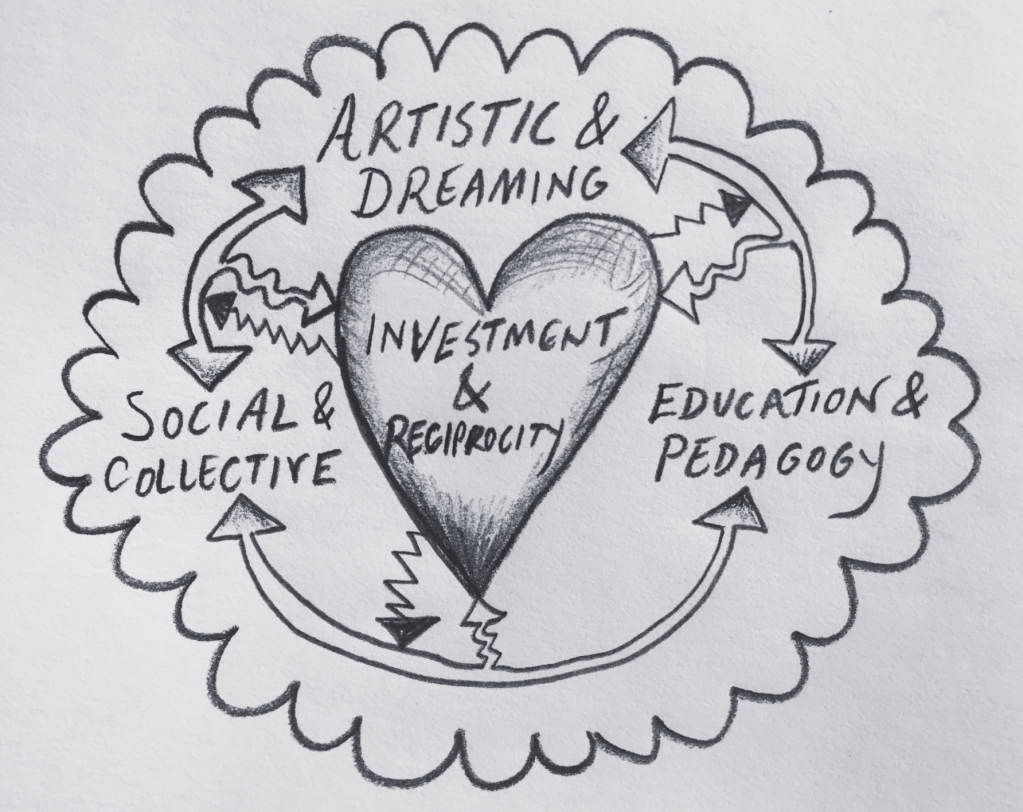 ARTISTIC &
DREAMING
INVESTMENT
&
RECIPROCITY
SOCIAL &
COLLECTIVE
EDUCATION &
PEDAGOGY